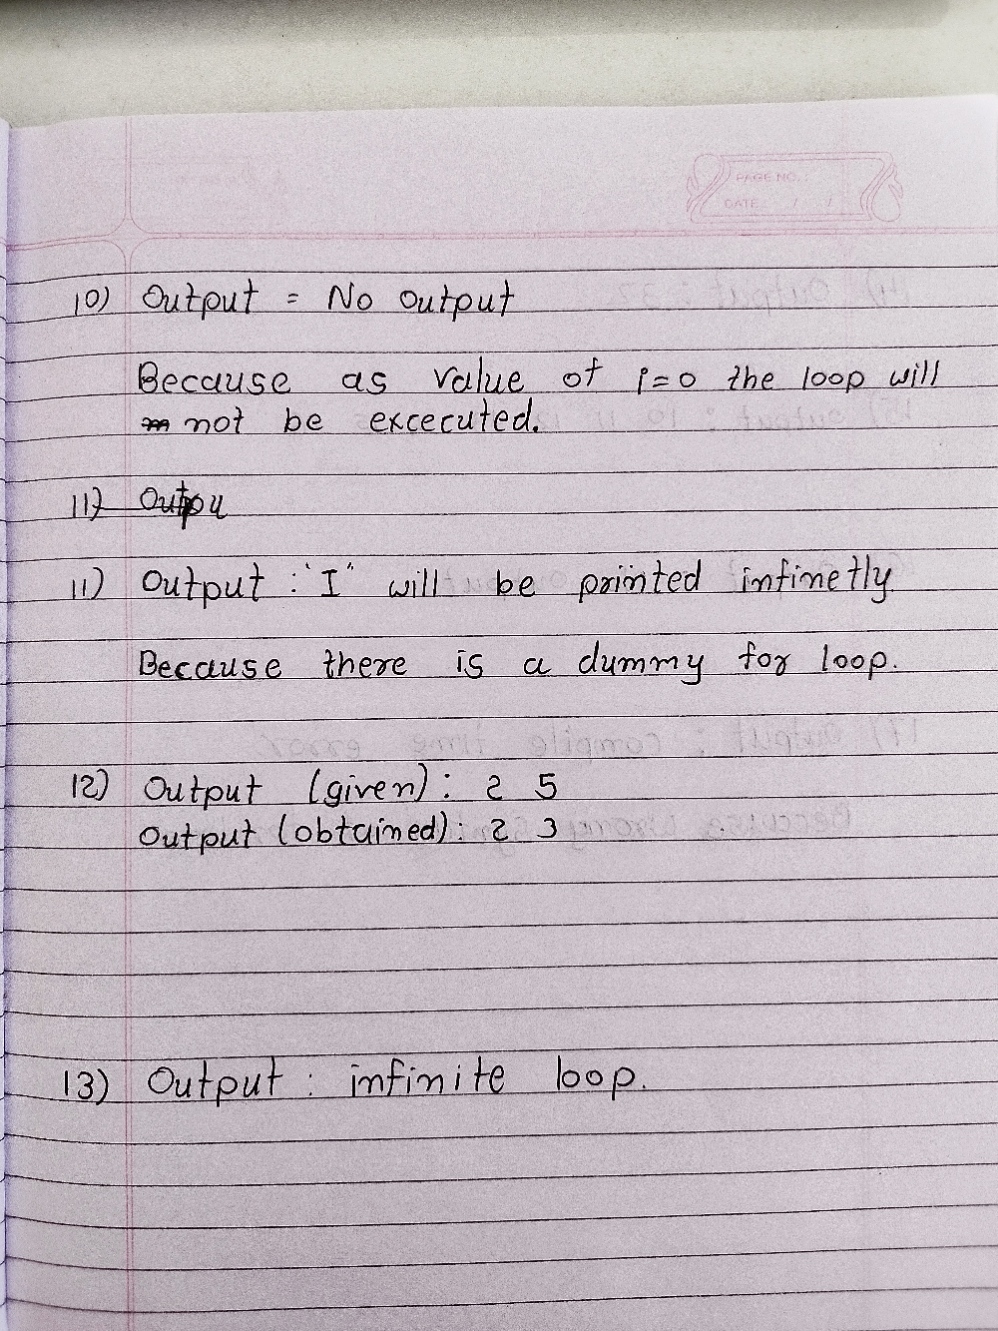 PAGE NO.:
DATE: / /
10) Output = No output
Because as value of i=0 the loop will
not be excecuted.
11) Outpu
11) Output : "I" will be printed infinetly.
Because there is a dummy for loop.
12) Output (given) : 2 5
Output (obtained) : 2 3
13) Output : infinite loop.